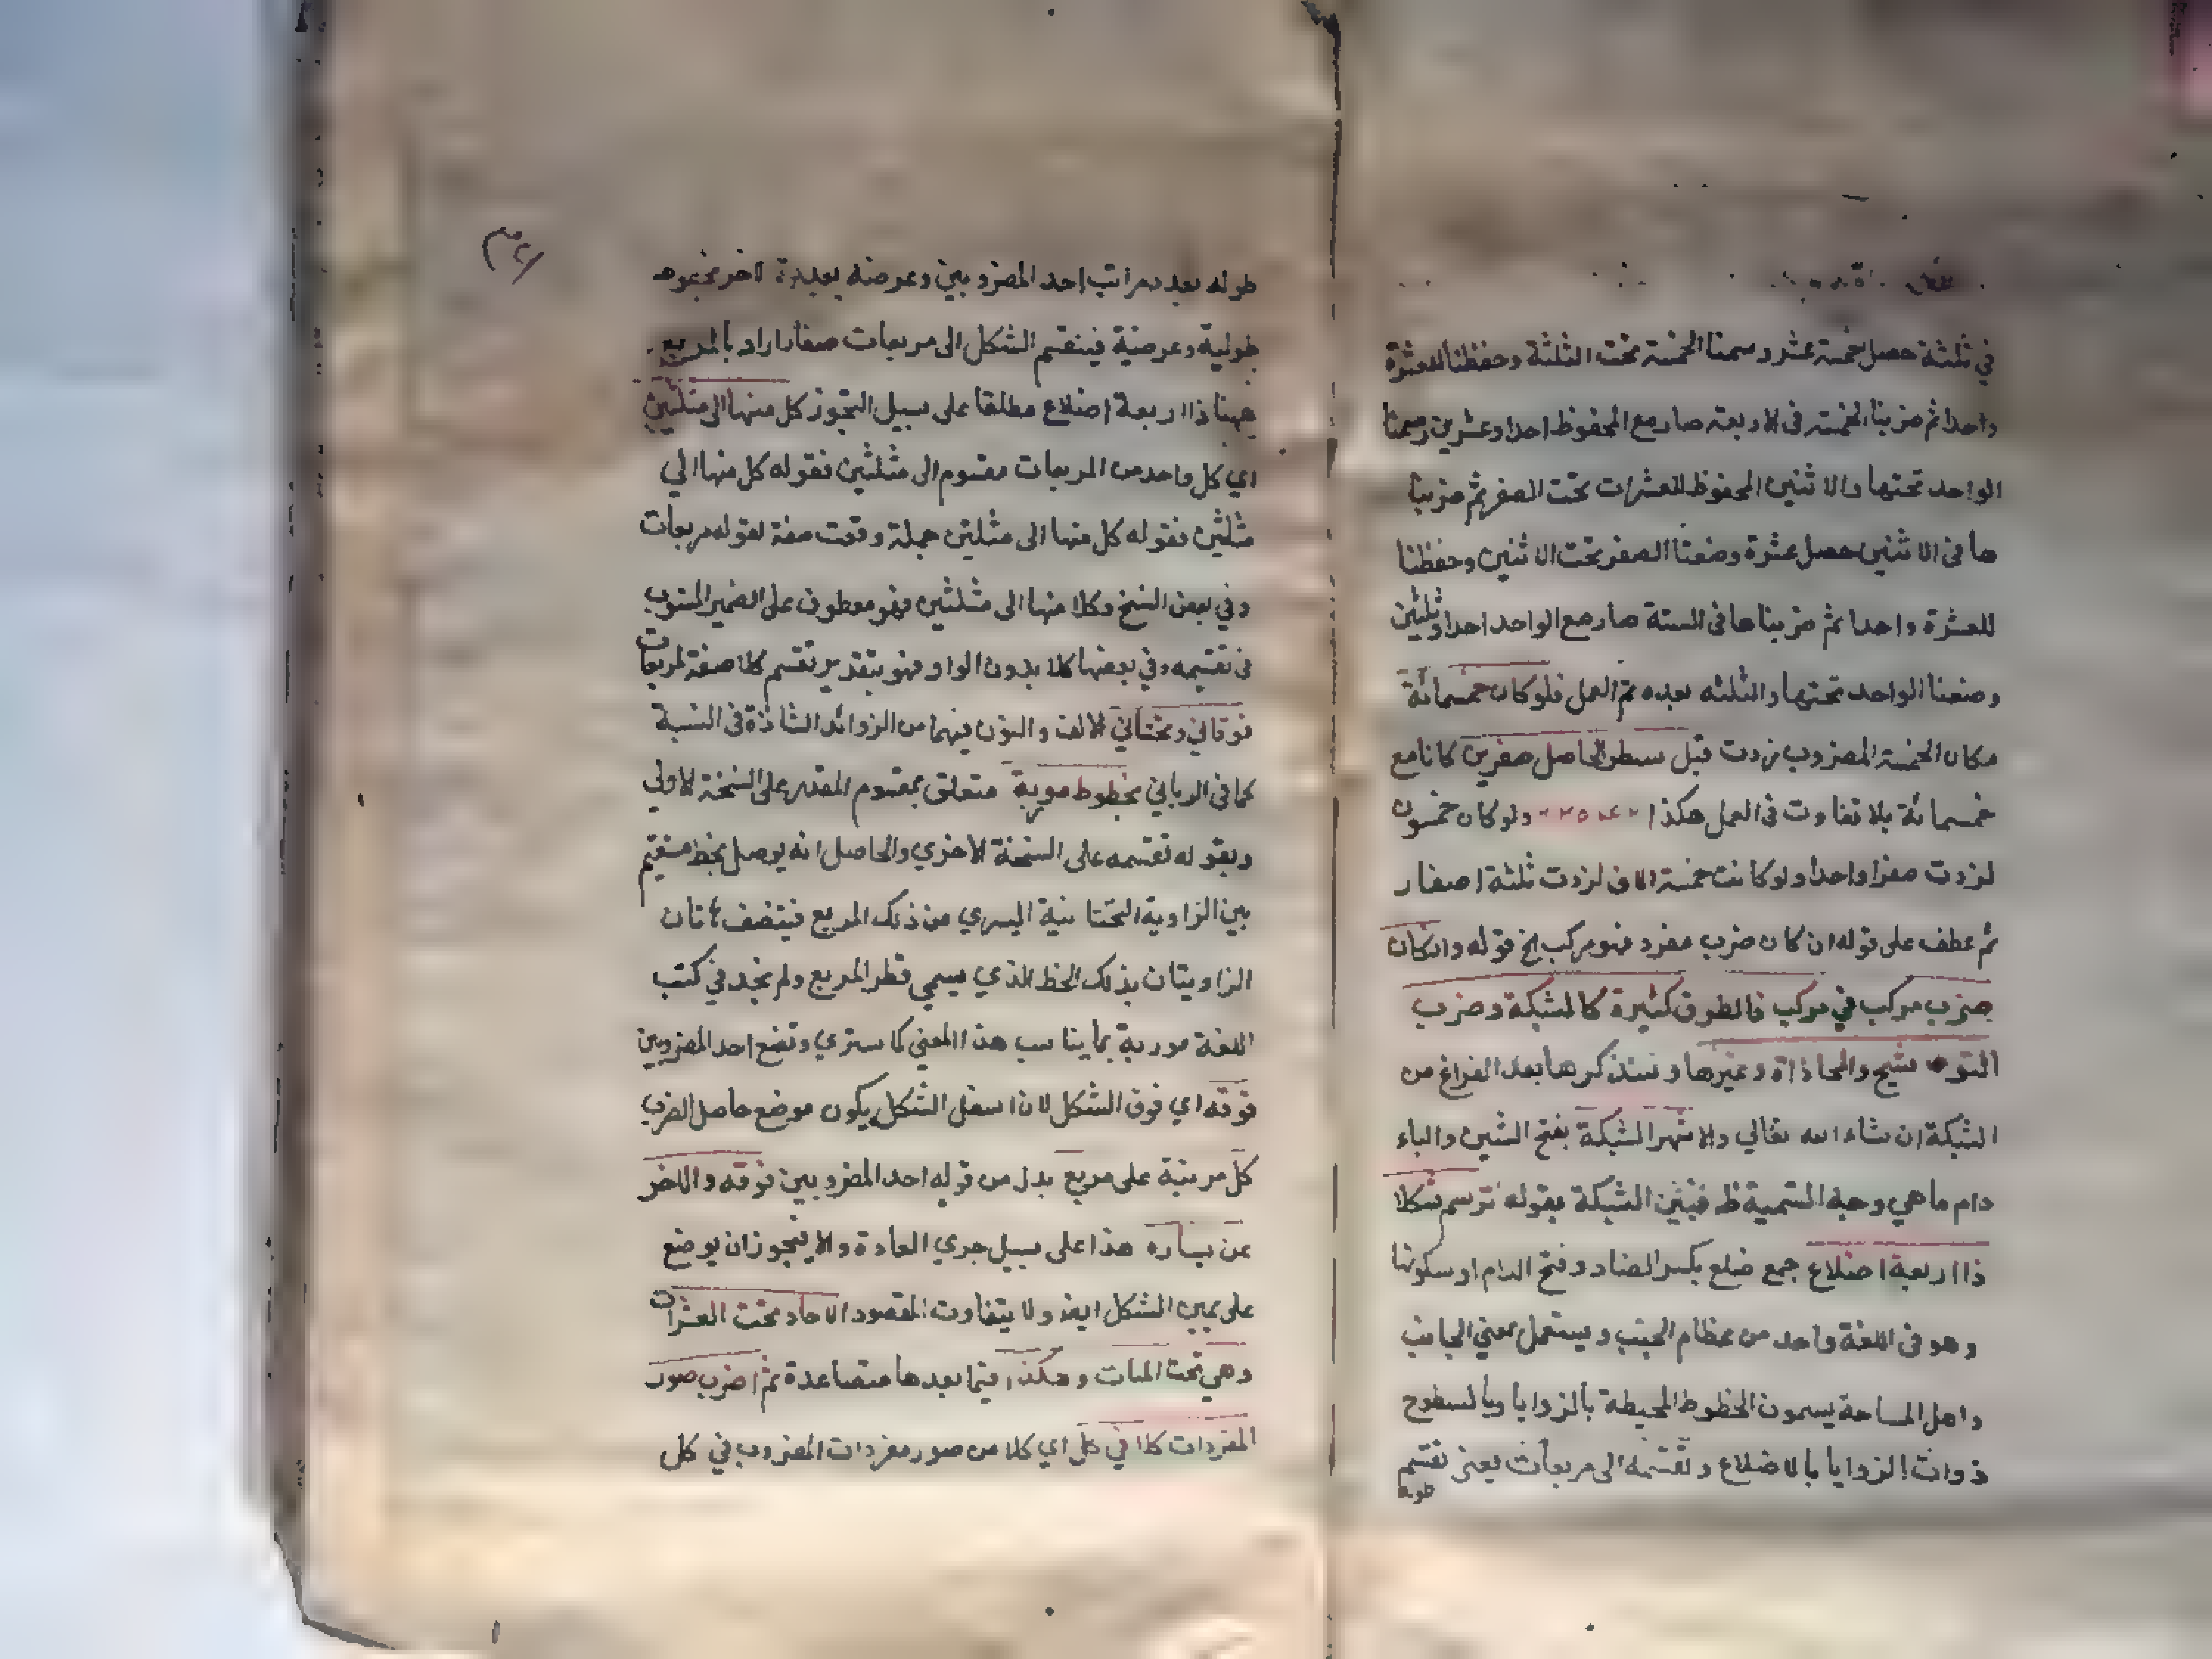 في ثلثة حصل خمسة عشر رسمنا الخمسة تحت الثلثة وحفظنا للعشرة
واحدا ثم ضربنا الخمسة في الاربعة صار مع المحفوظ احدا وعشرين رسمنا
الواحد تحتها والاثنين المحفوظ للعشرات تحت الصفر ثم ضربنا
ها في الاثنين حصل عشرة وضعنا الصفر تحت الاثنين وحفظنا
للعشرة واحدا ثم ضربناها في الستة صار مع الواحد احدا وثلثين
وضعنا الواحد تحتها والثلثه بعده تم العمل فلو كان خمسمائة
مكان الخمسة المضروب زدت قبل سطر الحاصل صفرين كانا مع
خمسمائة بلا تفاوت في العمل هكذا ولو كان خمسون
لزدت صفرا واحدا ولو كانت خمسة الاف لزدت ثلثة اصفار
ثم عطف على قوله ان كان ضرب مفرد فهو مركب الخ قوله وان كان
ضرب مركب في مركب فالطرق كثيرة كالشبكة وضرب
التو شيح والمحاذاة وغيرها وسنذكرها بعد الفراغ من
الشبكة ان شاء الله تعالي والاشهر الشبكة بفتح الشين والباء
دام ما هي وجه التسمية ظ فيبين الشبكة بقوله ترسم شكلا
ذا اربعة اضلاع جمع ضلع بكسر الضاد وفتح اللام او سكونها
وهو في اللغة واحد من عظام الجنب ويستعمل بمعني الجانب
واهل المساحة يسمون الخطوط المحيطة بالزوايا وبالسطوح
ذوات الزوايا بالاضلاع وتقسمه الى مربعات يعني تقسم
طوله
٣٤
طوله بعدد مراتب احد المضروبين وعرضه بعدد الاخر
طولية وعرضية فينقسم الشكل الى مربعات صغار اراد بالمربع
ههنا ذا اربعة اضلاع مطلقا على سبيل التجوز كل منها الى مثلثين
اي كل واحد من المربعات مقسوم الى مثلثين فقوله كل منها الي
مثلثين فقوله كل منها الى مثلثين جملة وقعت صفة لقوله مربعات
وفي بعض النسخ وكلا منها الى مثلثين فهو معطوف على الضمير المنصوب
في تقسيمه وفي بعضها كلا بدون الواو فهو بتقدير تقسم كلا صفة لمربعات
فوقاني وتحتاني الالف والنون فيهما من الزوائد الشاذة في النسبة
كما في الرباني بخطوط موربة متعلق بمقسوم المقدر على النسخة الاولي
وبقوله تقسمه على النسخة الاخري والحاصل انه يوصل بخط مستقيم
بين الزاوية التحتانية اليسري من ذلك المربع فينتصف تان
الزاويتان بذلك الخط الذي يسمي قطر المربع ولم نجد في كتب
اللغة موربة بما يناسب هذا المعني كما ستري وتضع احد المضروبين
فوقه اي فوق الشكل لان اسفل الشكل يكون موضع حاصل الضرب
كل مرتبة على مربع بدل من قوله احد المضروبين فوقه والاخر
عن يساره هذا على سبيل جري العادة والا فيجوز ان يوضع
على يمين الشكل ايضا ولا يتفاوت المقصود الاحاد تحت العشرات
وهي تحت المئات وهكذا فيما بعدها متصاعدة ثم اضرب صور
المفردات كلا في كل اي كلا من صور مفردات المضروب في كل